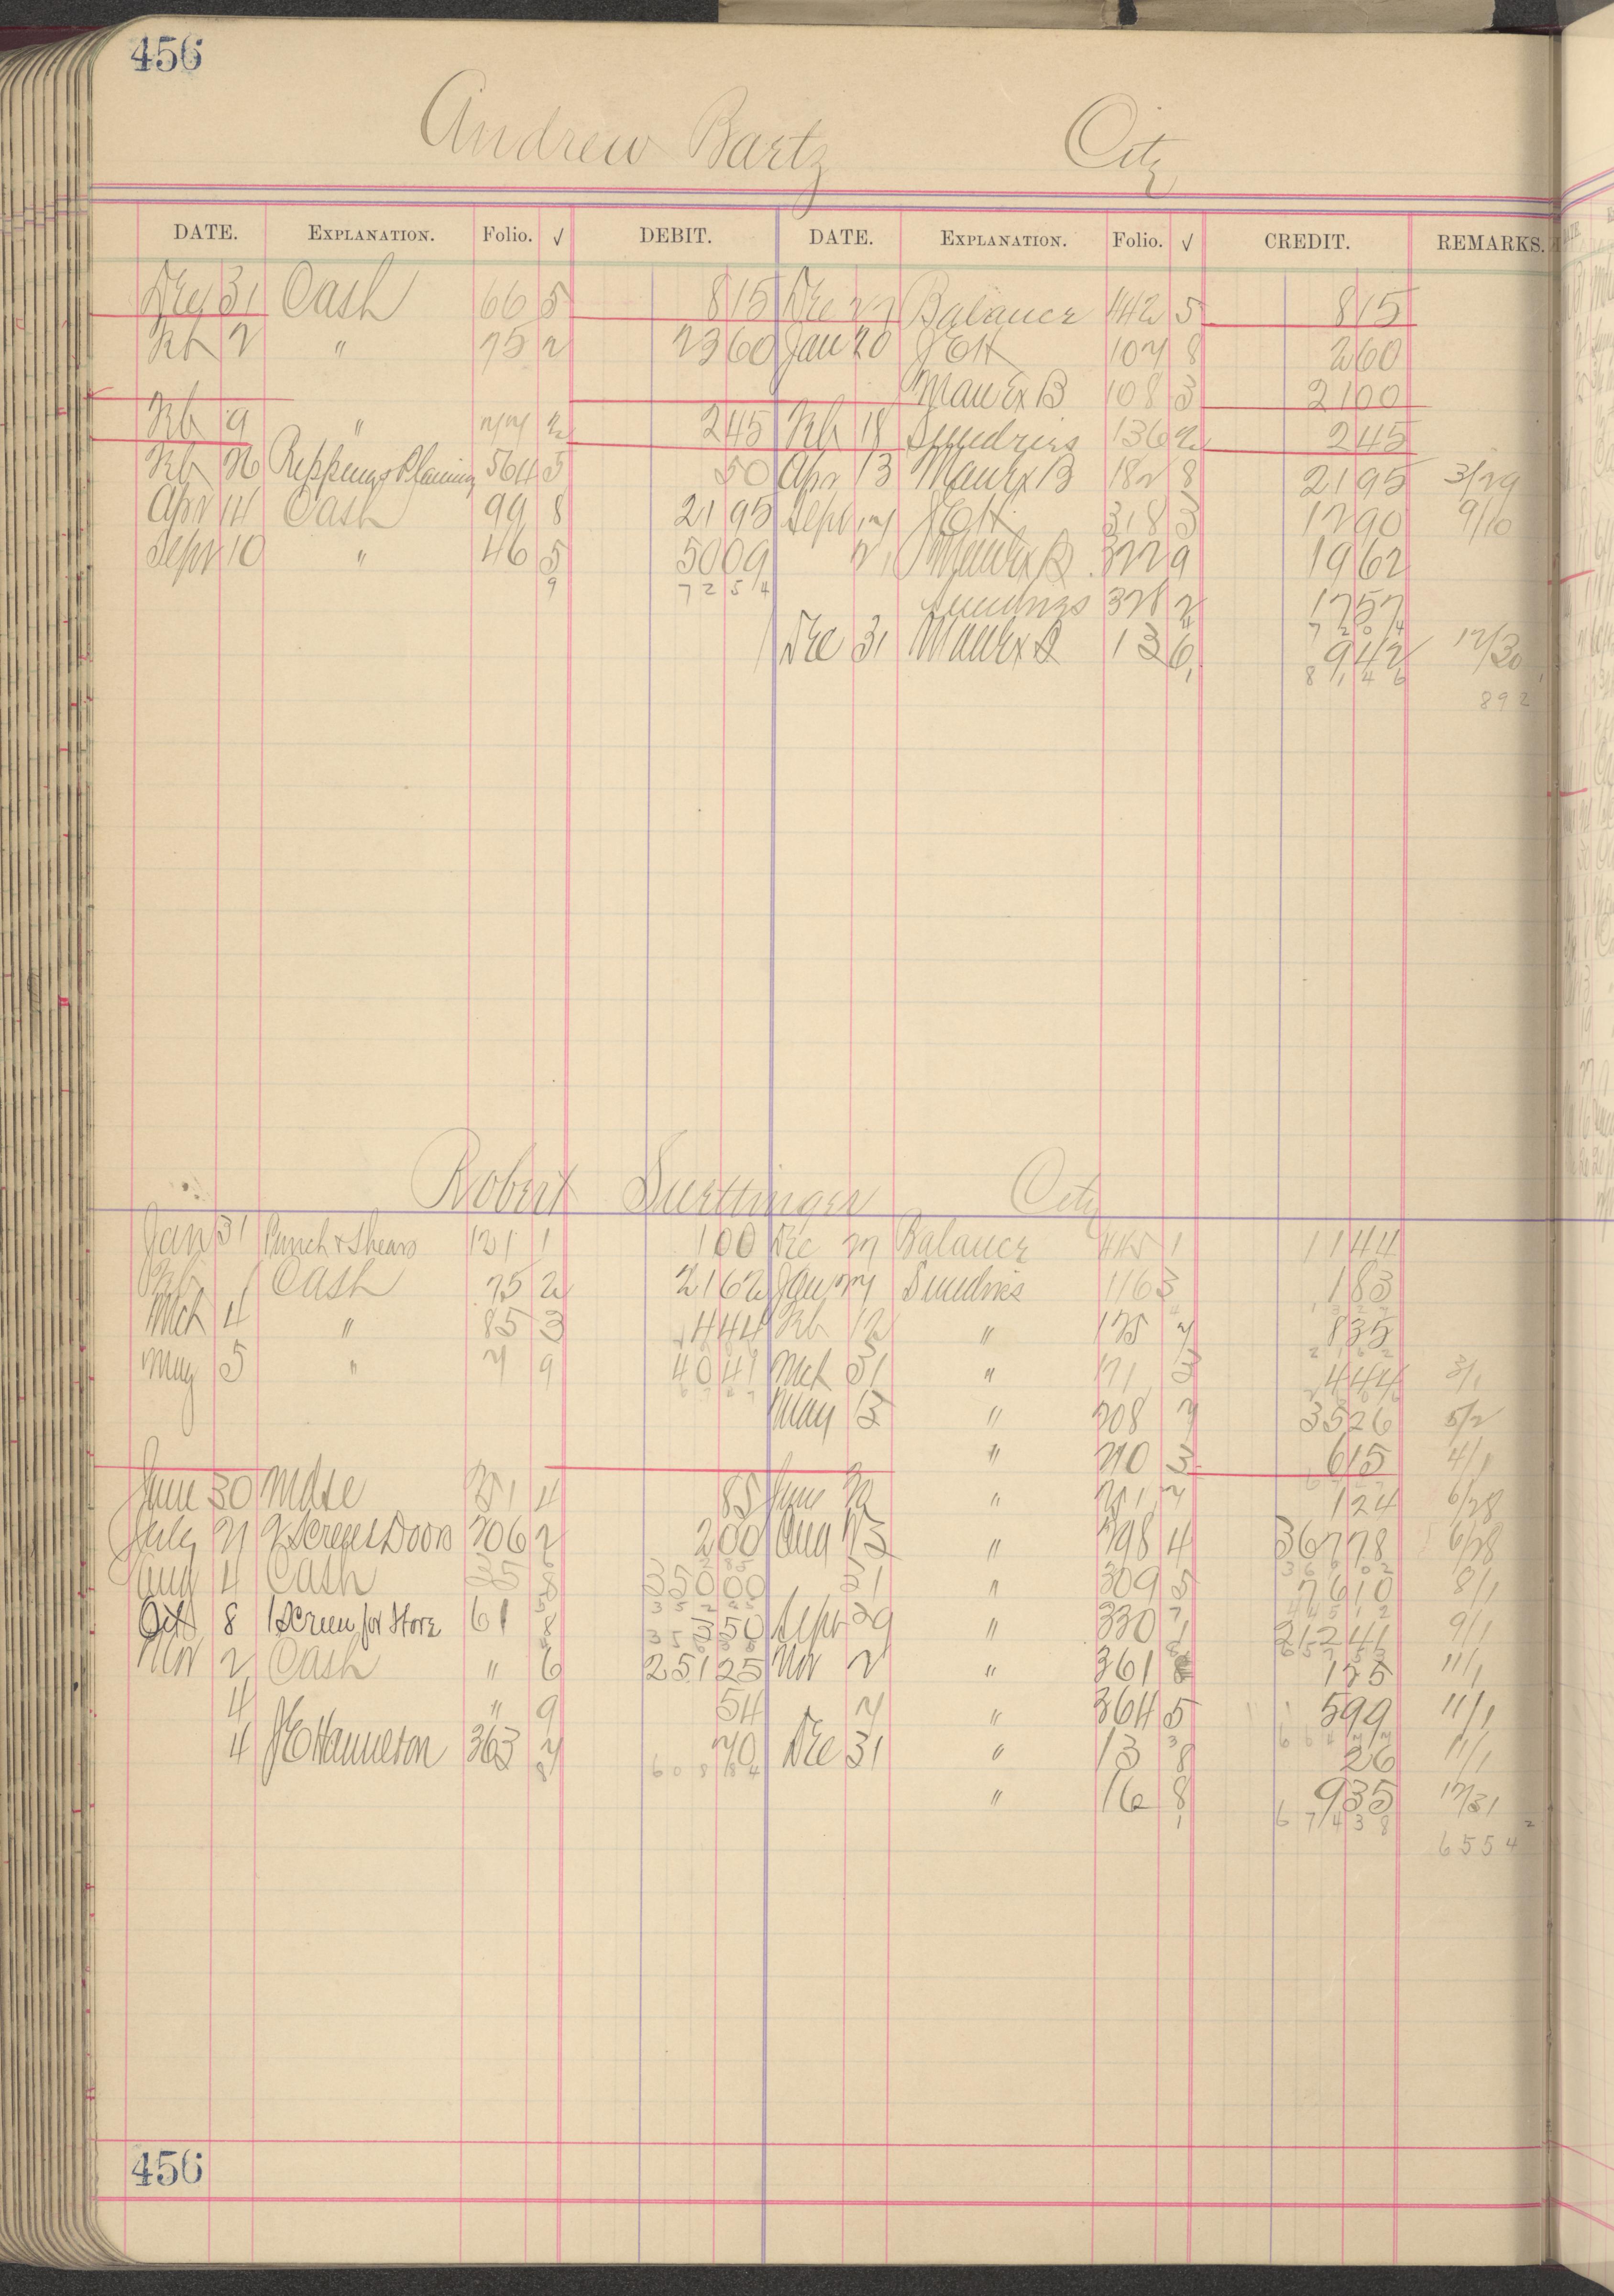 456
Andrew Bartz City
DATE. EXPLANATION. Folio. √ DEBIT. DATE. EXPLANATION. Folio. √ CREDIT. REMARKS.
Dec 31 Cash 66 5 8 15 Dec 27 Balance 442 5 8 15
Feb 2 " 75 2 23 60 Jan 20 JEH 107 8 2 60
Man Ex B 108 3 21 00
Feb 9 " 77 2 2 45 Feb 18 Sundries 136 2 2 45
Feb 26 Ripping & Planing 564 5 50 Apr 13 Man Ex B 182 8 21 95 3/29
Apr 14 Cash 99 8 21 95 Sept 17 JEH 318 3 12 90 9/10
Sept 10 " 46 5 50 09 21 Man Ex B 322 9 19 62
9 72 54
Sundries 328 2 17 57
Dec 31 Man Ex B 13 6 9 42 12/30
1 81 46
892
Robert Duettinger City
Jan 31 Punch & Shears 121 1 1 00 Dec 27 Balance 445 1 11 44
Feb 1 Cash 75 2 21 62 Jan 27 Sundries 116 3 1 83
Mch 4 " 85 3 4 44 Feb 12 " 125 7 8 35
May 5 " 7 9 40 41 Mch 31 " 171 3 4 44 3/1
May 13 " 208 7 35 26 5/2
" 210 3 6 15 4/1
June 30 Mdse 251 4 85 June " 251 7 1 24 6/28
July 21 2 Screens Doors 206 2 2 00 Aug 13 " 298 4 367 78 6/28
Aug 4 Cash 35 8 350 00 31 " 309 5 76 10 8/1
Oct 8 1 Screen for Store 61 8 3 50 Sept 29 " 330 1 212 41 9/1
Nov 2 Cash " 6 251 25 Nov 2 " 361 1 25 11/1
4 " 9 54 7 " 364 5 5 99 11/1
4 JE Hamilton 363 7 70 Dec 31 " 13 8 26 11/1
608 84
" 16 8 9 35 12/31
1 674 38
6554
456